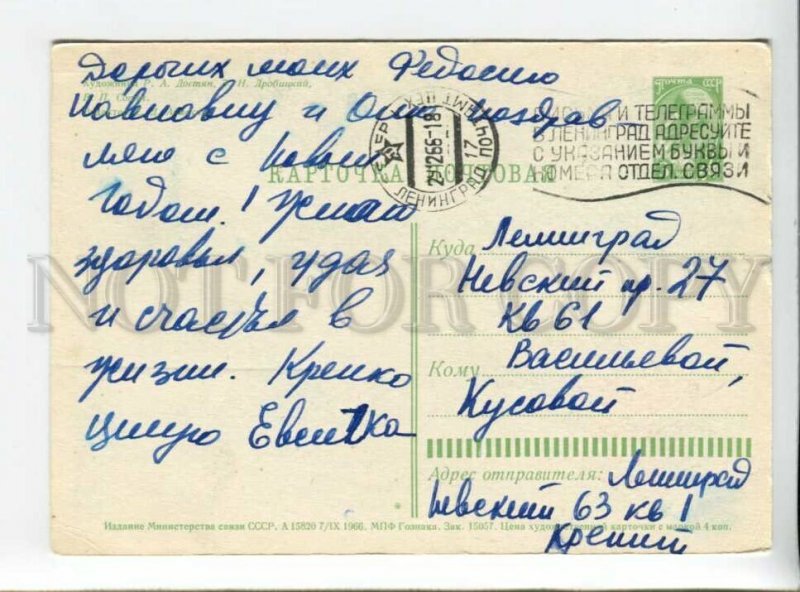 Дорогих моих Федосию
Художники Р. А. Достян, Н. Дробицкий,
Павловну и Олю поздрав-
ляю с Новым
годом! Желаю
здоровья, удач
и счастья в
жизни. Крепко
целую
ПОЧТА СССР
И ТЕЛЕГРАММЫ
В ЛЕНИНГРАД АДРЕСУЙТЕ
С УКАЗАНИЕМ БУКВЫ И
НОМЕРА ОТДЕЛ. СВЯЗИ
ЛЕНИНГРАД
КАРТОЧКА ПОЧТОВАЯ
Куда Ленинград
Невский пр. 27
кв 61
Кому Васильевой,
Кусовой
Адрес отправителя: Ленинград
Невский 63 кв 1
Издание Министерства связи СССР. А 15820 7/IX 1966. МПФ Гознака. Зак. 15057. Цена художественной карточки с маркой 4 коп.
NOT FOR COPY